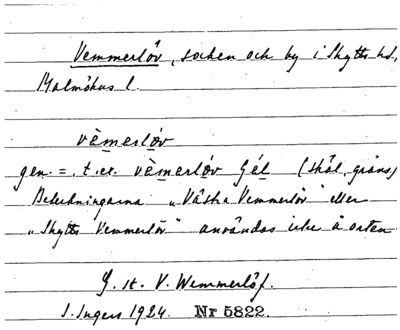 Vemmerlöv, socken och by i Skytts hd,
Malmöhus l.
vèmerlöv
gen. =, t.ex. vèmerlöv gél (skål, gräns)
Beteckningarna "Västra Vemmerlöv" eller
"Skytts Vemmerlöv" användas icke å orten
G. st. V. Wemmerlöf.
I. Ingers 1924. Nr 5822.